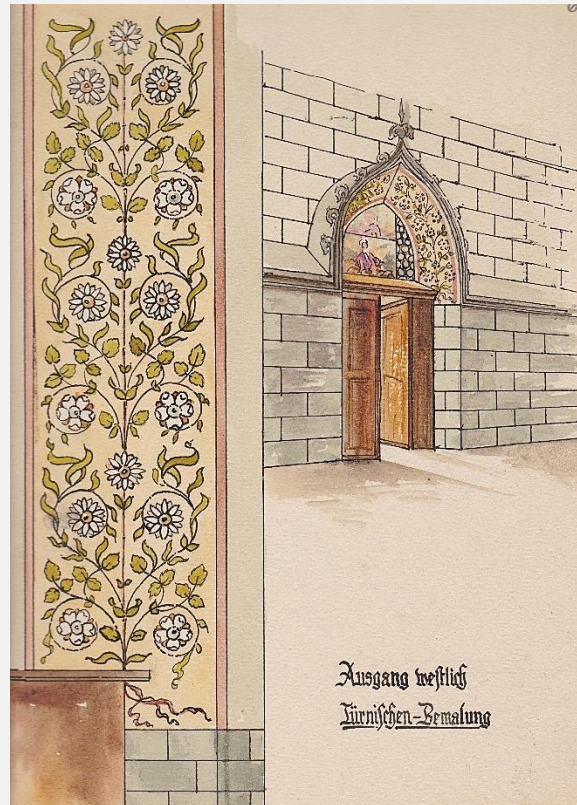 Ausgang westlich
Türnischen-Bemalung